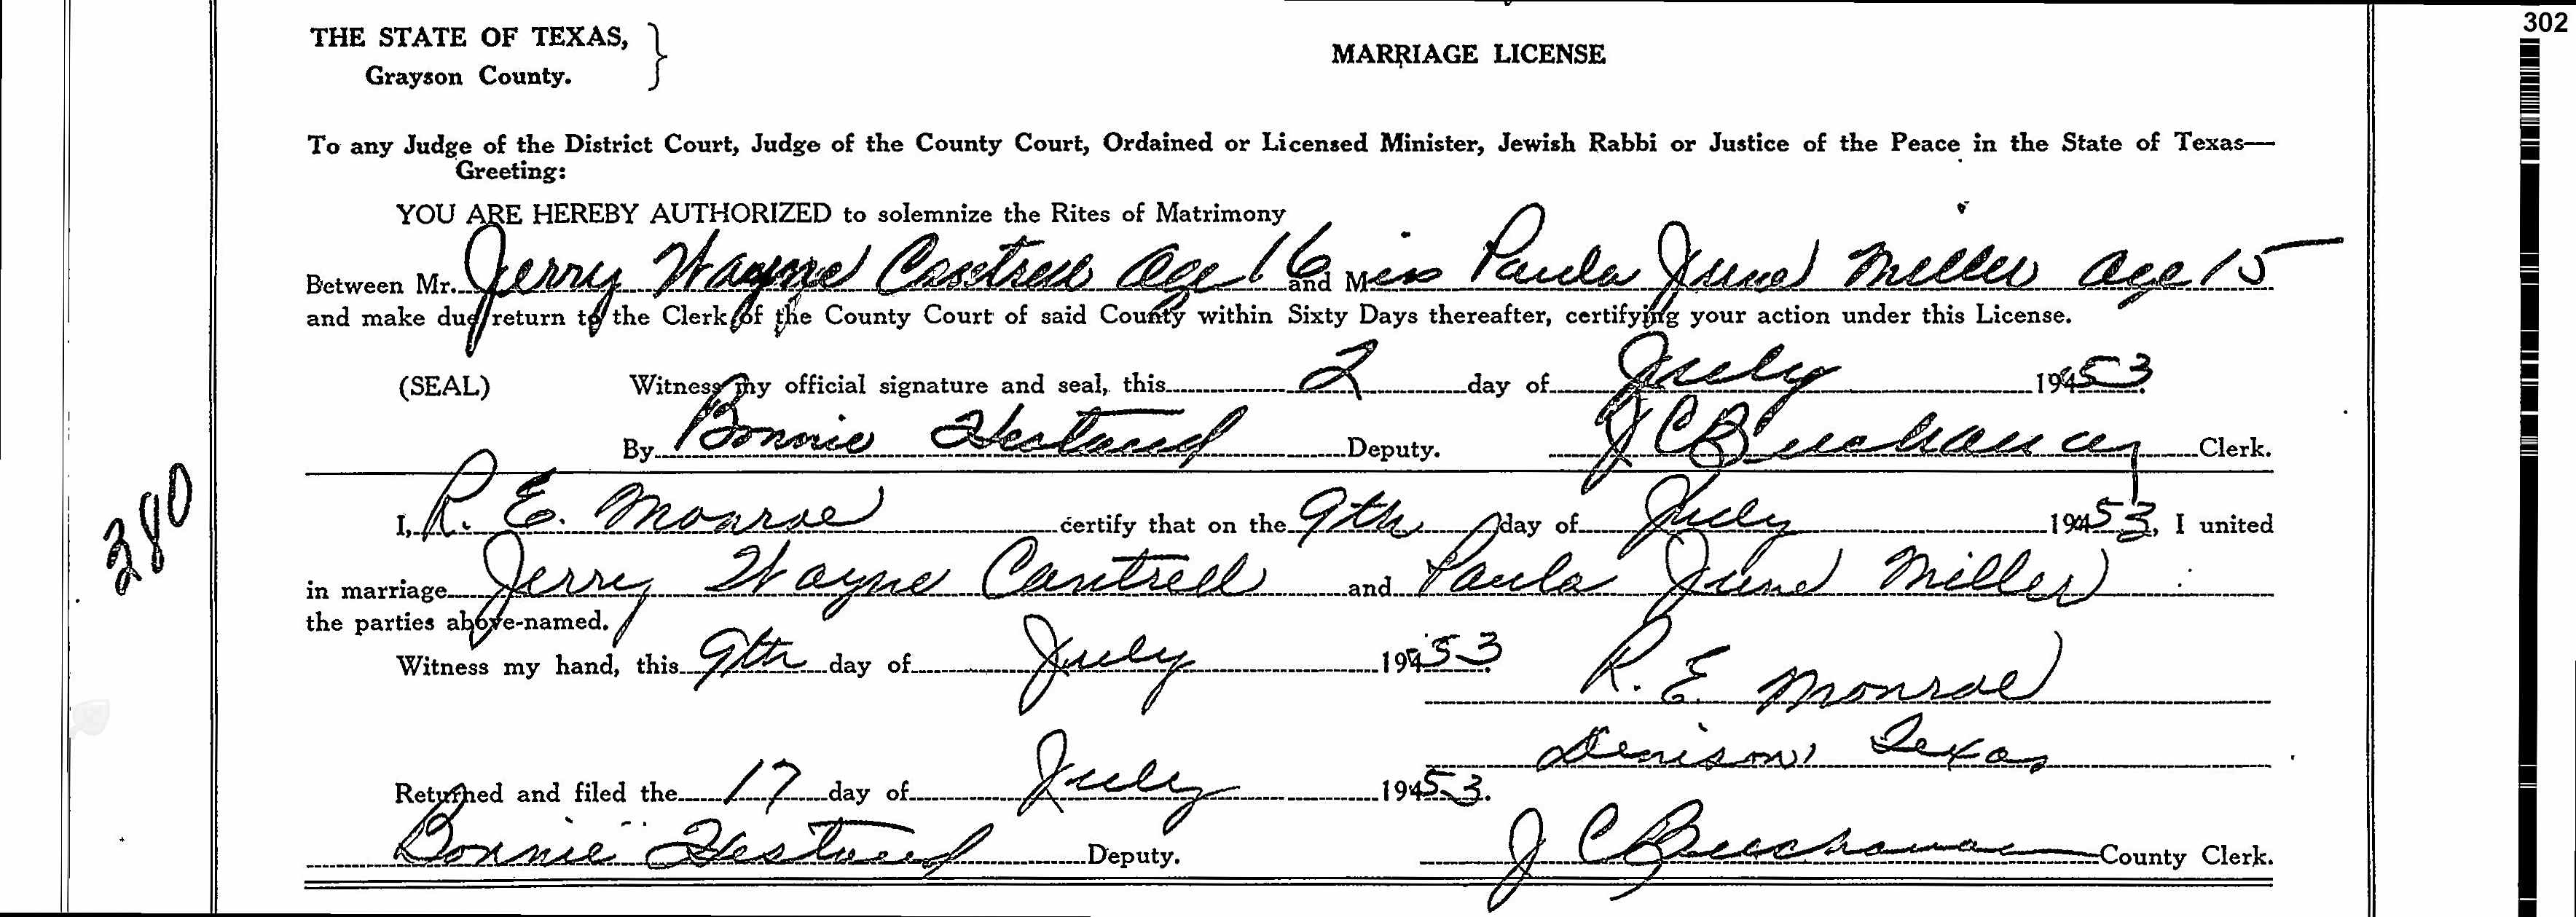 302
THE STATE OF TEXAS,
Grayson County.
MARRIAGE LICENSE
To any Judge of the District Court, Judge of the County Court, Ordained or Licensed Minister, Jewish Rabbi or Justice of the Peace in the State of Texas—
Greeting:
YOU ARE HEREBY AUTHORIZED to solemnize the Rites of Matrimony
Between Mr. Jerry Wayne Cantrell age 16 and Miss Paula June Miller age 15
and make due return to the Clerk of the County Court of said County within Sixty Days thereafter, certifying your action under this License.
(SEAL) Witness my official signature and seal, this 2 day of July 1953
By Bonnie Deputy. J C Buchanan Clerk.
I, R. E. Monroe certify that on the 9th day of July 1953, I united
380
in marriage Jerry Wayne Cantrell and Paula June Miller
the parties above-named.
Witness my hand, this 9th day of July 1953
R. E. Monroe
Denison, Texas
Returned and filed the 17 day of July 1953.
Bonnie Deputy. J C Buchanan County Clerk.